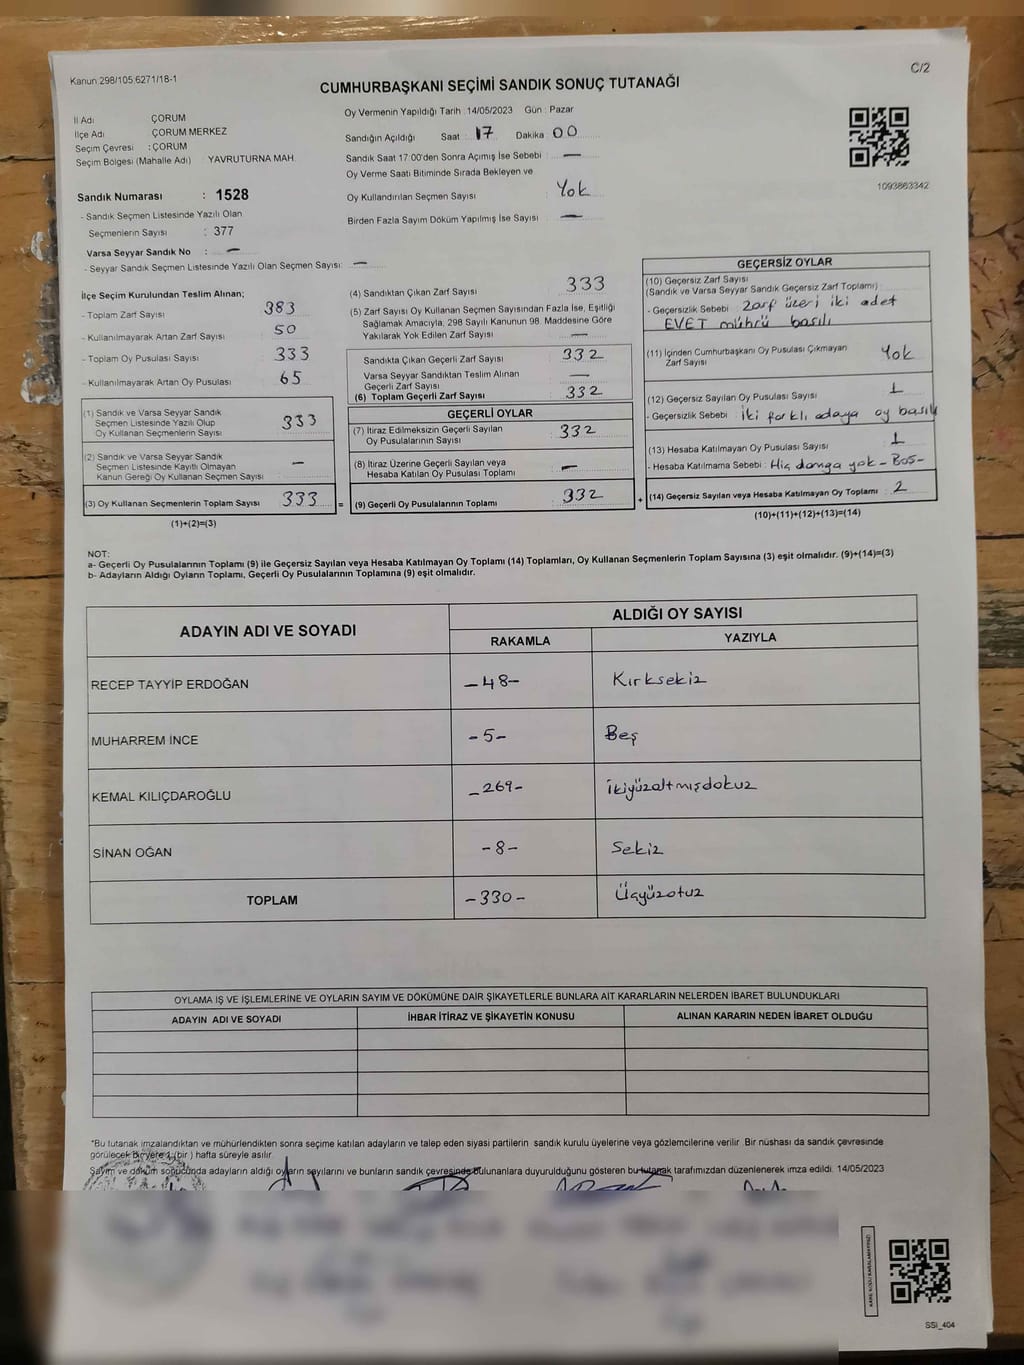 Kanun:298/105,6271/18-1
C/2
CUMHURBAŞKANI SEÇİMİ SANDIK SONUÇ TUTANAĞI
İl Adı ÇORUM
İlçe Adı ÇORUM MERKEZ
Seçim Çevresi : ÇORUM
Seçim Bölgesi (Mahalle Adı) YAVRUTURNA MAH.
Sandık Numarası : 1528
- Sandık Seçmen Listesinde Yazılı Olan
Seçmenlerin Sayısı : 377
Varsa Seyyar Sandık No : —
- Seyyar Sandık Seçmen Listesinde Yazılı Olan Seçmen Sayısı: —
Oy Vermenin Yapıldığı Tarih : 14/05/2023 Gün : Pazar
Sandığın Açıldığı Saat : 17 Dakika 00
Sandık Saat 17:00'den Sonra Açımış İse Sebebi : —
Oy Verme Saati Bitiminde Sırada Bekleyen ve
Oy Kullandırılan Seçmen Sayısı : Yok
Birden Fazla Sayım Döküm Yapılmış İse Sayısı : —
1093863342
İlçe Seçim Kurulundan Teslim Alınan;
- Toplam Zarf Sayısı : 383
- Kullanılmayarak Artan Zarf Sayısı : 50
- Toplam Oy Pusulası Sayısı : 333
- Kullanılmayarak Artan Oy Pusulası : 65
(1) Sandık ve Varsa Seyyar Sandık
Seçmen Listesinde Yazılı Olup
Oy Kullanan Seçmenlerin Sayısı : 333
(2) Sandık ve Varsa Seyyar Sandık
Seçmen Listesinde Kayıtlı Olmayan
Kanun Gereği Oy Kullanan Seçmen Sayısı : —
(3) Oy Kullanan Seçmenlerin Toplam Sayısı : 333
(1)+(2)=(3)
(4) Sandıktan Çıkan Zarf Sayısı : 333
(5) Zarf Sayısı Oy Kullanan Seçmen Sayısından Fazla İse, Eşitliği
Sağlamak Amacıyla, 298 Sayılı Kanunun 98. Maddesine Göre
Yakılarak Yok Edilen Zarf Sayısı : —
Sandıkta Çıkan Geçerli Zarf Sayısı : 332
Varsa Seyyar Sandıktan Teslim Alınan
Geçerli Zarf Sayısı : —
(6) Toplam Geçerli Zarf Sayısı : 332
GEÇERLİ OYLAR
(7) İtiraz Edilmeksizin Geçerli Sayılan
Oy Pusulalarının Sayısı : 332
(8) İtiraz Üzerine Geçerli Sayılan veya
Hesaba Katılan Oy Pusulası Toplamı : —
= (9) Geçerli Oy Pusulalarının Toplamı : 332
GEÇERSİZ OYLAR
(10) Geçersiz Zarf Sayısı
(Sandık ve Varsa Seyyar Sandık Geçersiz Zarf Toplamı) :
- Geçersizlik Sebebi : Zarf üzeri iki adet
EVET mührü basılı
(11) İçinden Cumhurbaşkanı Oy Pusulası Çıkmayan
Zarf Sayısı : Yok
(12) Geçersiz Sayılan Oy Pusulası Sayısı : 1
- Geçersizlik Sebebi : iki farklı adaya oy basılı
(13) Hesaba Katılmayan Oy Pusulası Sayısı : 1
- Hesaba Katılmama Sebebi : Hiç damga yok-Boş-
+ (14) Geçersiz Sayılan veya Hesaba Katılmayan Oy Toplamı : 2
(10)+(11)+(12)+(13)=(14)
NOT:
a- Geçerli Oy Pusulalarının Toplamı (9) ile Geçersiz Sayılan veya Hesaba Katılmayan Oy Toplamı (14) Toplamları, Oy Kullanan Seçmenlerin Toplam Sayısına (3) eşit olmalıdır. (9)+(14)=(3)
b- Adayların Aldığı Oyların Toplamı, Geçerli Oy Pusulalarının Toplamına (9) eşit olmalıdır.
ADAYIN ADI VE SOYADI ALDIĞI OY SAYISI
RAKAMLA YAZIYLA
RECEP TAYYİP ERDOĞAN -48- Kırksekiz
MUHARREM İNCE -5- Beş
KEMAL KILIÇDAROĞLU -269- ikiyüzaltmışdokuz
SİNAN OĞAN -8- Sekiz
TOPLAM -330- Üçyüzotuz
OYLAMA İŞ VE İŞLEMLERİNE VE OYLARIN SAYIM VE DÖKÜMÜNE DAİR ŞİKAYETLERLE BUNLARA AİT KARARLARIN NELERDEN İBARET BULUNDUKLARI
ADAYIN ADI VE SOYADI İHBAR İTİRAZ VE ŞİKAYETİN KONUSU ALINAN KARARIN NEDEN İBARET OLDUĞU
*Bu tutanak imzalandıktan ve mühürlendikten sonra seçime katılan adayların ve talep eden siyasi partilerin sandık kurulu üyelerine veya gözlemcilerine verilir. Bir nüshası da sandık çevresinde
görülecek bir yere 1 (bir ) hafta süreyle asılır.
Sayım ve döküm sonucunda adayların aldığı oyların sayılarını ve bunların sandık çevresinde bulunanlara duyurulduğunu gösteren bu tutanak tarafımızdan düzenlenerek imza edildi. 14/05/2023
SSİ_404